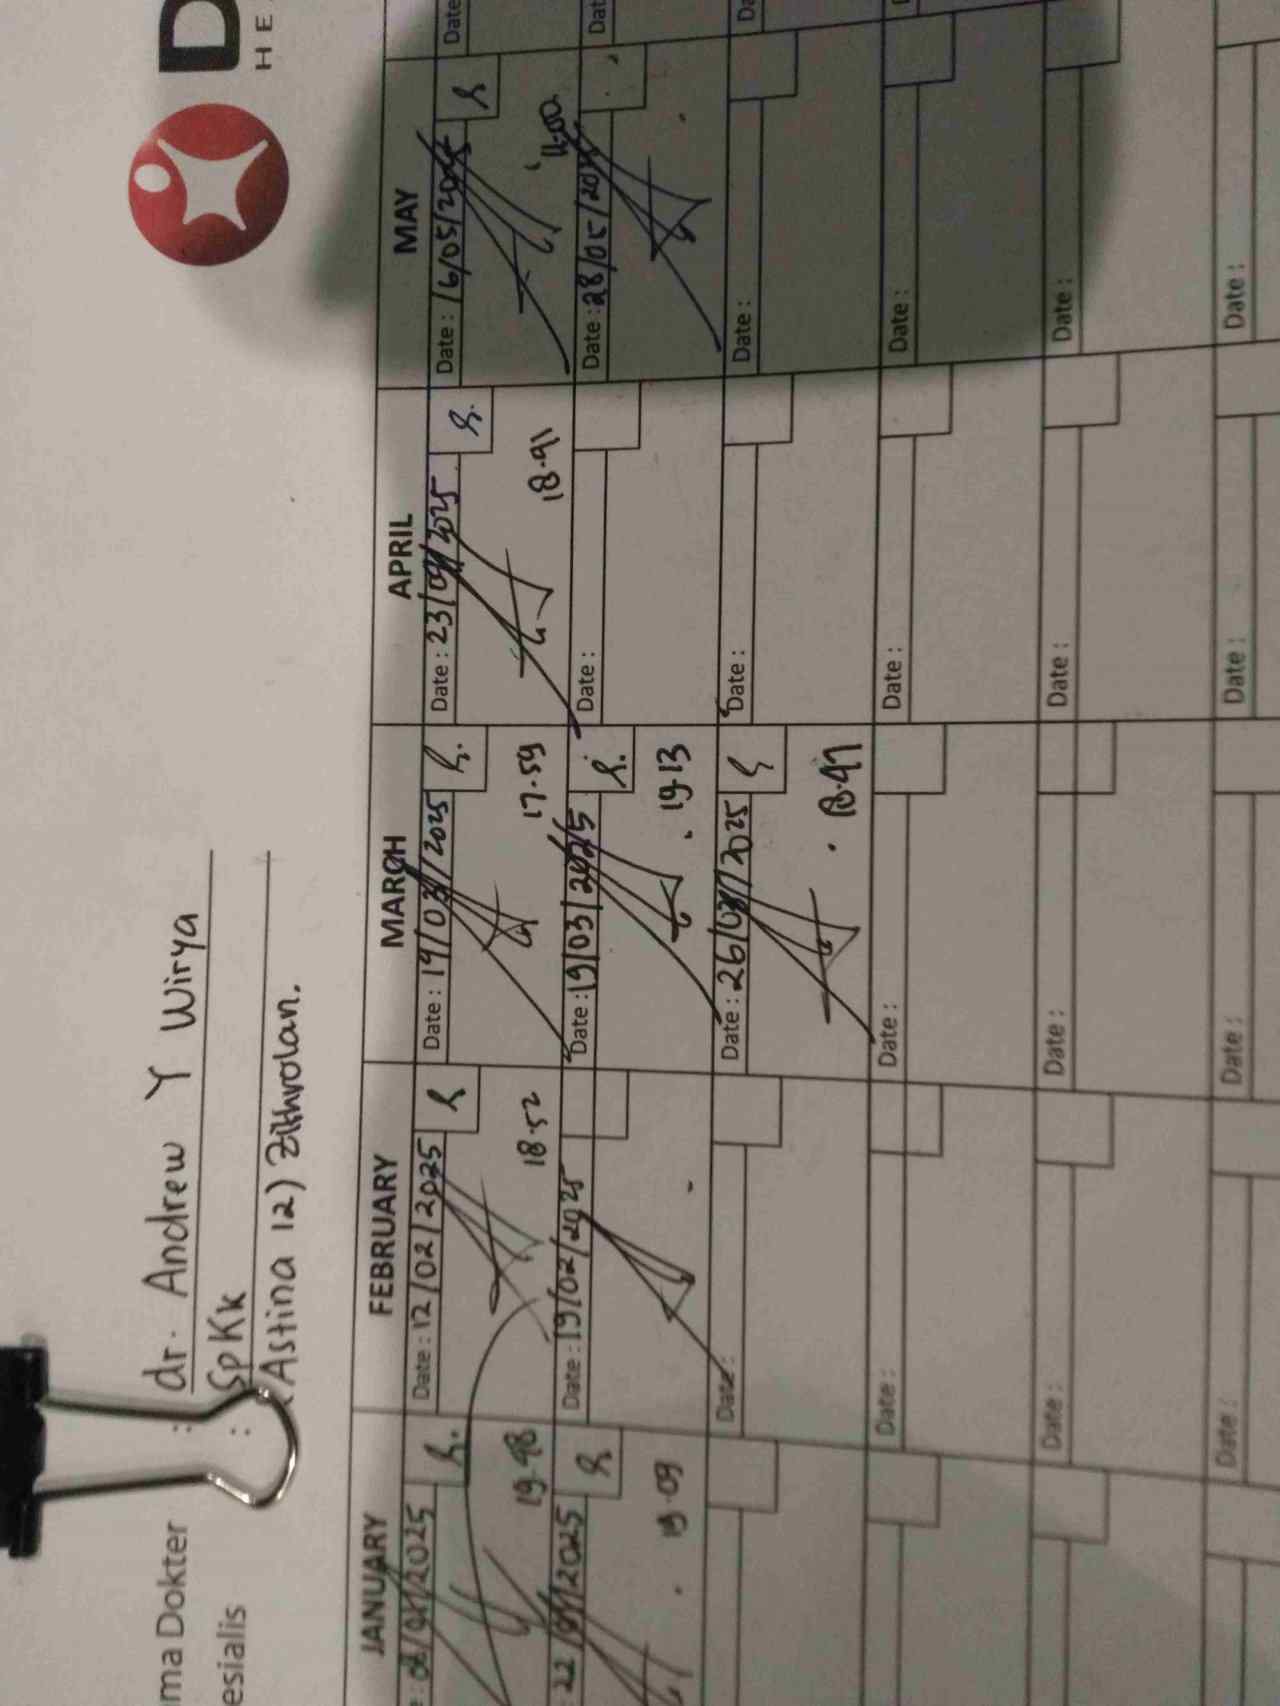 D
HE
ma Dokter : dr. Andrew Y Wirya
esialis : SpKk
(Astina 12) Zithrolan.
JANUARY FEBRUARY MARCH APRIL MAY
: 08/01/2025 Date : 12/02/2025 Date : 19/03/2025 Date : 23/04/2025 Date : 16/05/2025 Date
19.48 18.52 17.59 18.41 11.00
22/01/2025 Date : 19/02/2025 Date : 19/03/2025 Date : Date : 28/05/2025 Dat
19.09 19.13
Date : Date : 26/03/2025 Date : Date : Da
18.47
Date : Date : Date : Date : D
Date : Date : Date : Date :
Date : Date : Date : Date :